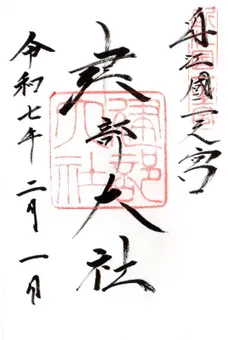 近江國一之宮
建部大社
建部大社
令和七年 二月一日